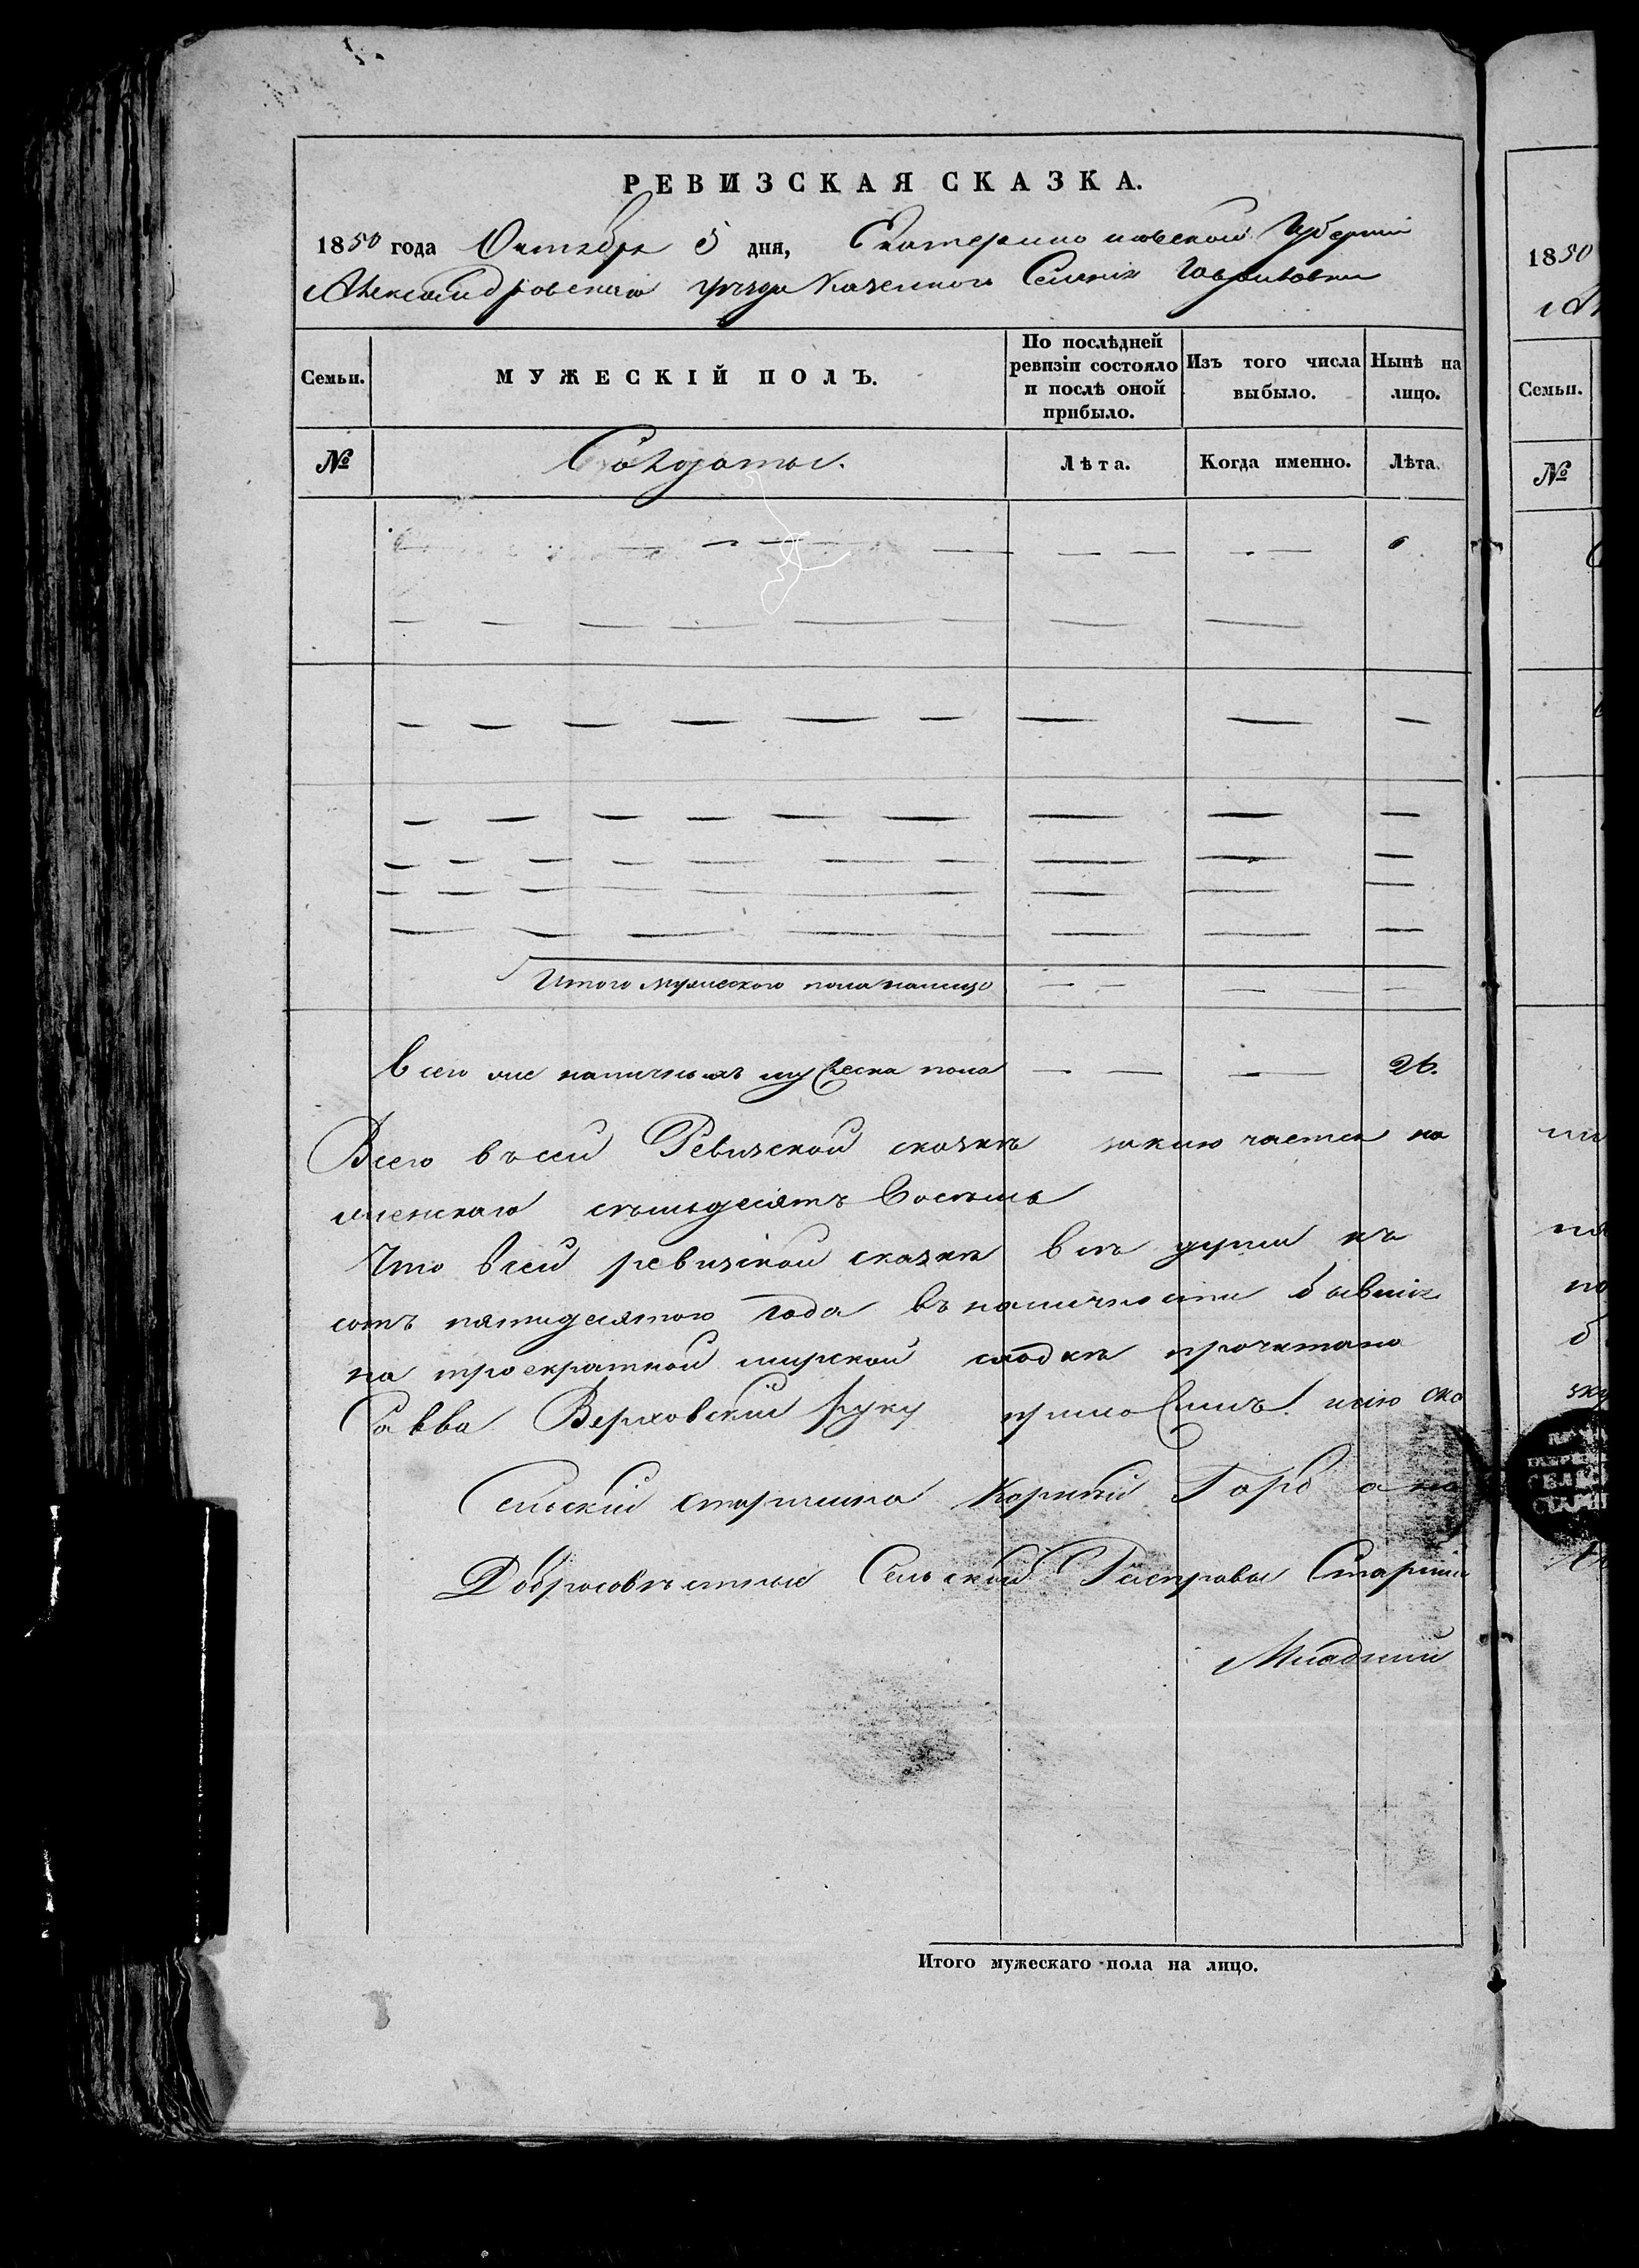 РЕВИЗСКАЯ СКАЗКА.
1850 года Октября 5 дня, Екатеринославской Губернии
Александровскаго уезда Казенного Селенія Гавриловки
Семьи. МУЖЕСКІЙ ПОЛЪ. По послѣдней ревизіи состояло и послѣ оной прибыло. Изъ того числа выбыло. Нынѣ на лицо.
№ Солдаты. Лѣта. Когда именно. Лѣта.
Итого мужескаго пола налицо
Всего же наличныхъ мужеска пола 26.
Всего въ сей Ревизской сказкѣ заключается на
женскаго семьдесятъ восемь
Что въ сей ревизской сказкѣ всѣ души къ
сотъ пятидесятого года въ наличности бывшія
на троекратной мирской сходкѣ прочитана
Савва Верховскій руку приложилъ
Сельскій Старшина Корнѣй Горб
Добросовѣстные Сельской Расправы Старшій
Младшій
Итого мужескаго пола на лицо.
1850
Семьи.
№